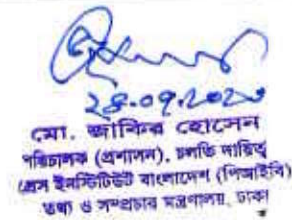 ২৪.০৭.২০২৩
মো. জাকির হোসেন
পরিচালক (প্রশাসন), চলতি দায়িত্ব
প্রেস ইনস্টিটিউট বাংলাদেশ (পিআইবি)
তথ্য ও সম্প্রচার মন্ত্রণালয়, ঢাকা